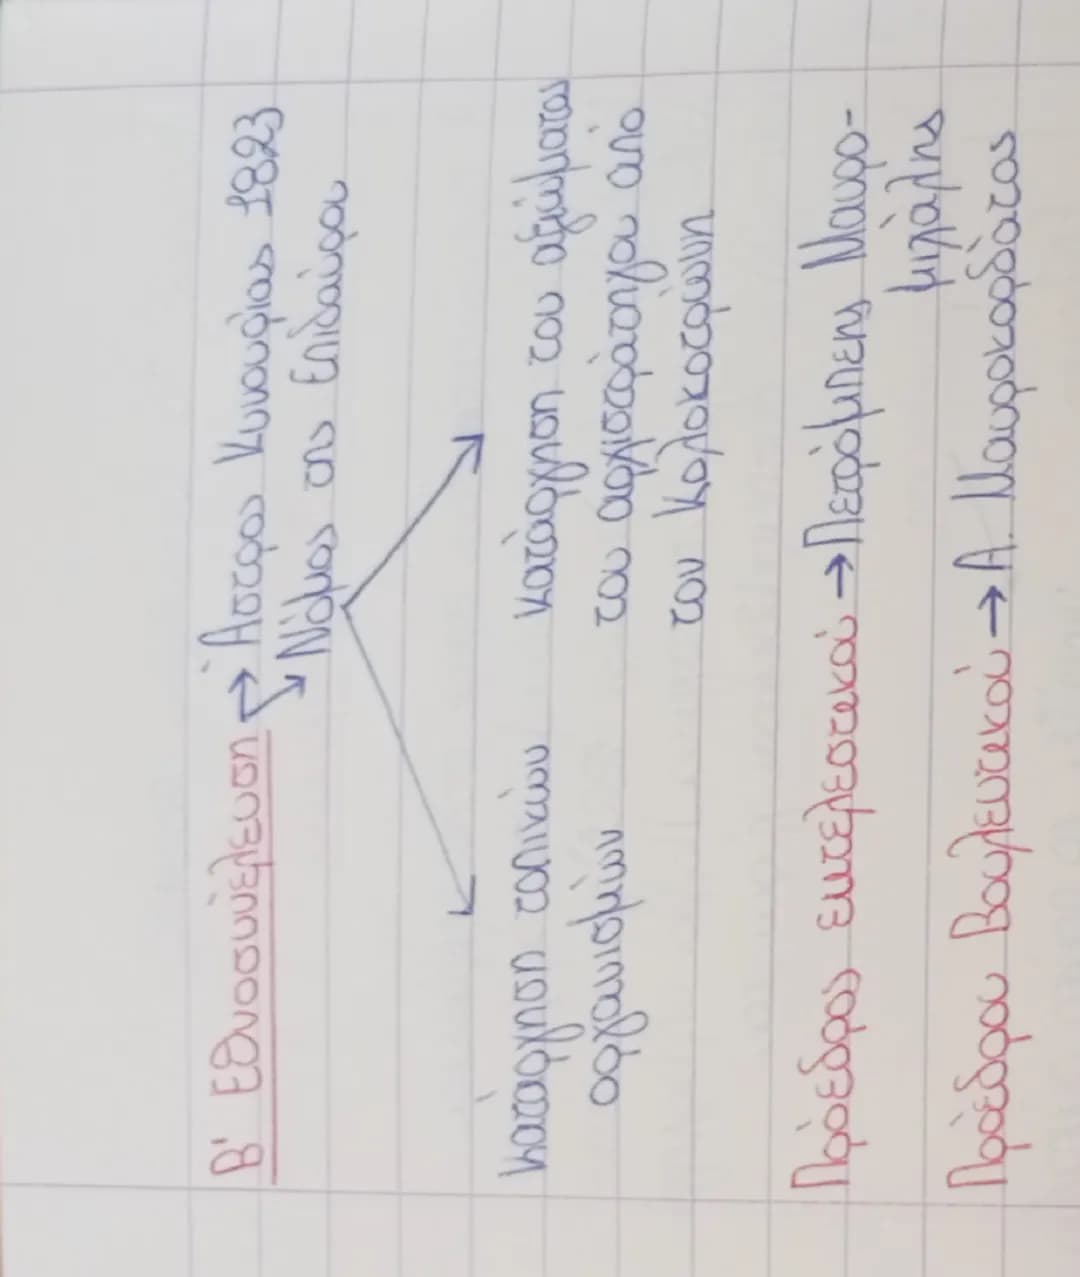 Β' Εθνοσυνέλευση → Άστρος Κυνουρίας 1823
→ Νόμος της Επιδαύρου
κατάργηση τοπικών
οργανισμών
κατάργηση του αξιώματος
του αρχιστράτηγου από
τον Κολοκοτρώνη
Πρόεδρος εκτελεστικού → Πετρόμπεης Μαυρο-
μιχάλης
Προέδρου Βουλευτικού → Α. Μαυροκορδάτος